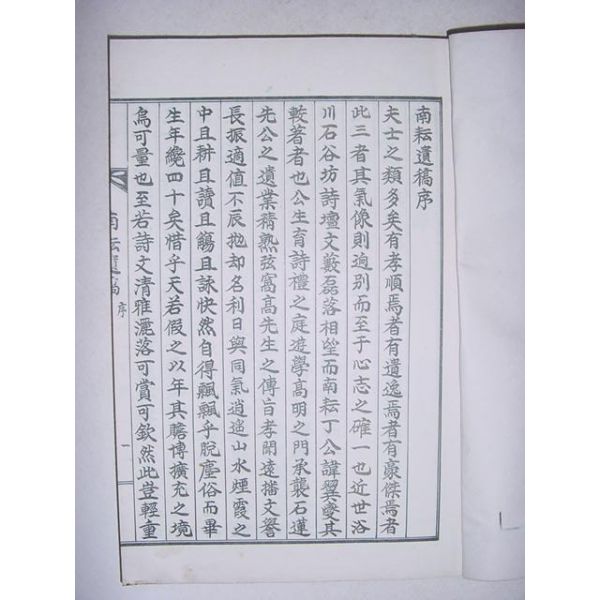 南耘遺稿序
夫士之類多矣有孝順焉者有遺逸焉者有豪傑焉者
此三者其氣像則逈別而至于心志之確一也近世浴
川石谷坊詩壇文藪磊落相望而南耘丁公諱翼燮其
較著者也公生育詩禮之庭遊學高明之門承襲石蓮
先公之遺業積熟弦窩高先生之傳旨孝聞遠播文譽
長振適値不辰抛却名利日與同氣逍遙山水煙霞之
中且耕且讀且觴且詠快然自得飄飄乎脫塵俗而畢
生年纔四十矣惜乎天若假之以年其贍博擴充之境
烏可量也至若詩文清雅灑落可賞可欽然此豈輕重
南耘遺稿 序 一